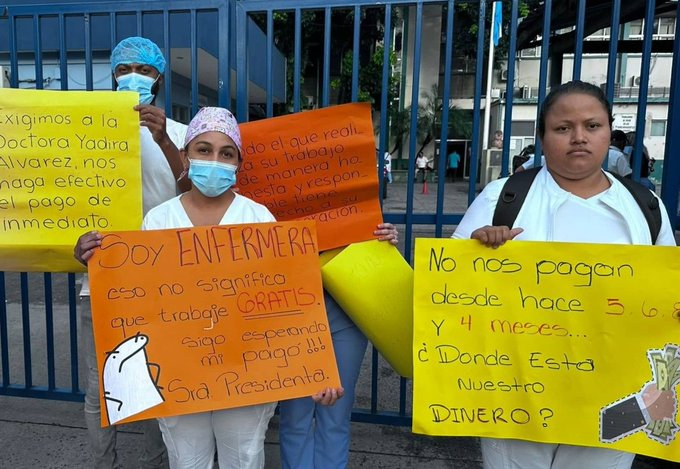 Exigimos a la
Doctora Yadira
Alvarez, nos
haga efectivo
el pago de
inmediato
do el que reali
a su trabajo
de manera ho
esta y respon
ble tiene
echo a su
ración.
Soy ENFERMERA
eso no significa
que trabaje GRATIS.
sigo esperando
mi pago!!!
Sra. Presidenta.
No nos pagan
desde hace 5,6,8
y 4 meses...
¿Donde Esta
Nuestro
DINERO?